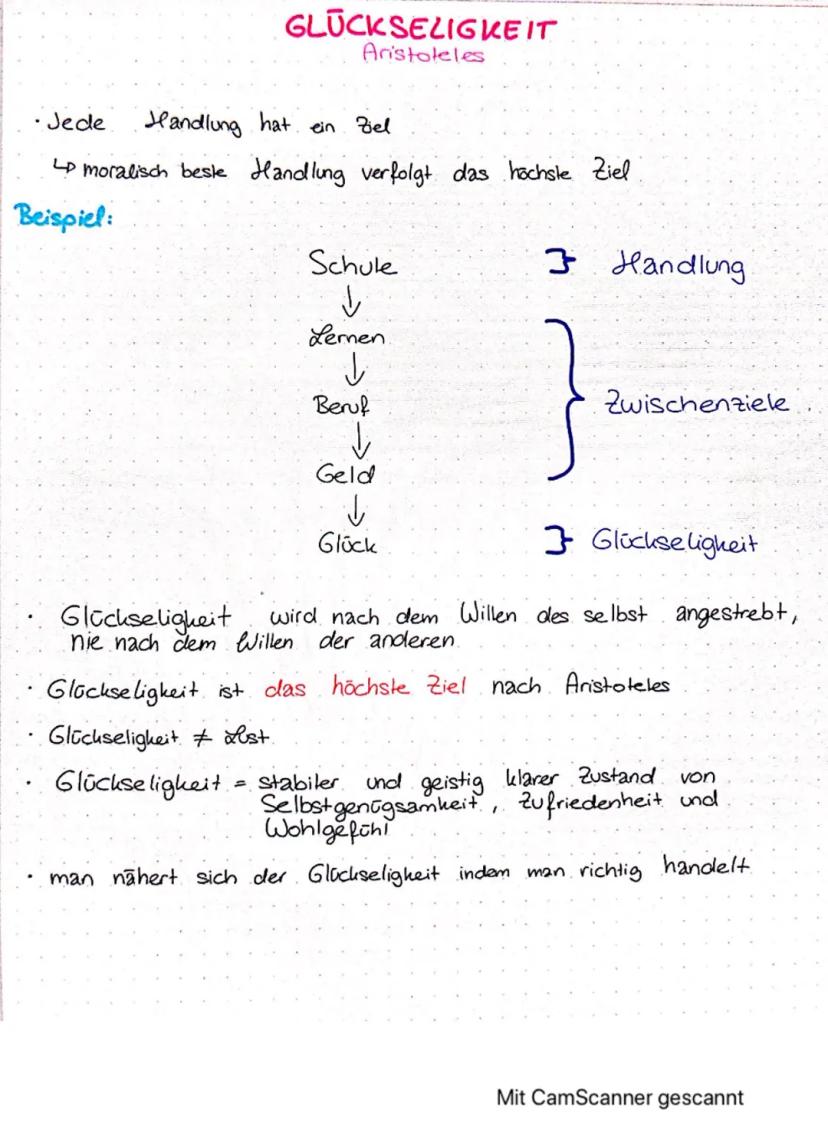 GLÜCKSELIGKEIT
Aristoteles
· Jede Handlung hat ein Ziel
↳ moralisch beste Handlung verfolgt das höchste Ziel
Beispiel:
Schule } Handlung
↓
Lernen
↓
Beruf } Zwischenziele
↓
Geld
↓
Glück } Glückseligkeit
· Glückseligkeit wird nach dem Willen des selbst angestrebt,
nie nach dem Willen der anderen
· Glückseligkeit ist das höchste Ziel nach Aristoteles
· Glückseligkeit ≠ Lust
· Glückseligkeit = stabiler und geistig klarer Zustand von
Selbstgenügsamkeit, Zufriedenheit und
Wohlgefühl
· man nähert sich der Glückseligkeit indem man richtig handelt
Mit CamScanner gescannt